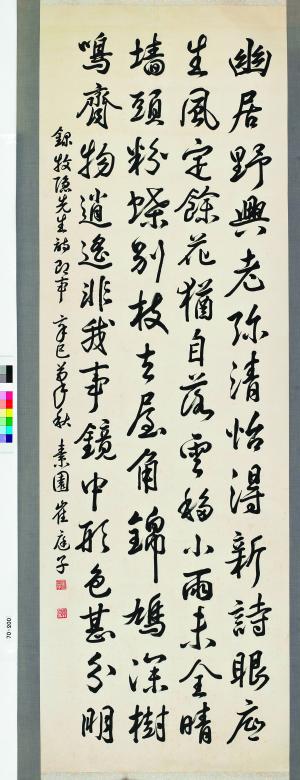 幽居野興老弥清恰得新詩眼底
生風定餘花猶自落雲移小雨未全晴
墻頭粉蝶別枝去屋角錦鳩深樹
鳴齊物逍遙非我事鏡中形色甚分明
錄牧隱先生詩即事 辛巳秋 素園 崔庭子
70-200